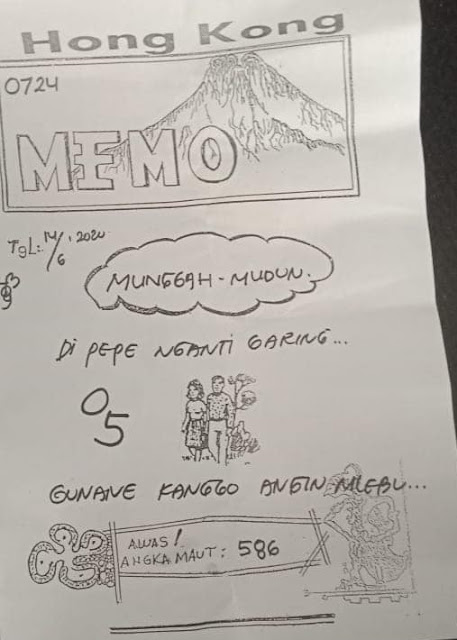 Hong Kong
0724
MEMO
TgL: 14/6 '2020
MUNGGAH - MUDUN.
Di PEPE NGANTI GARING...
05
GUNANE KANGGO ANGIN MLEBU...
AWAS!
ANGKA MAUT: 586